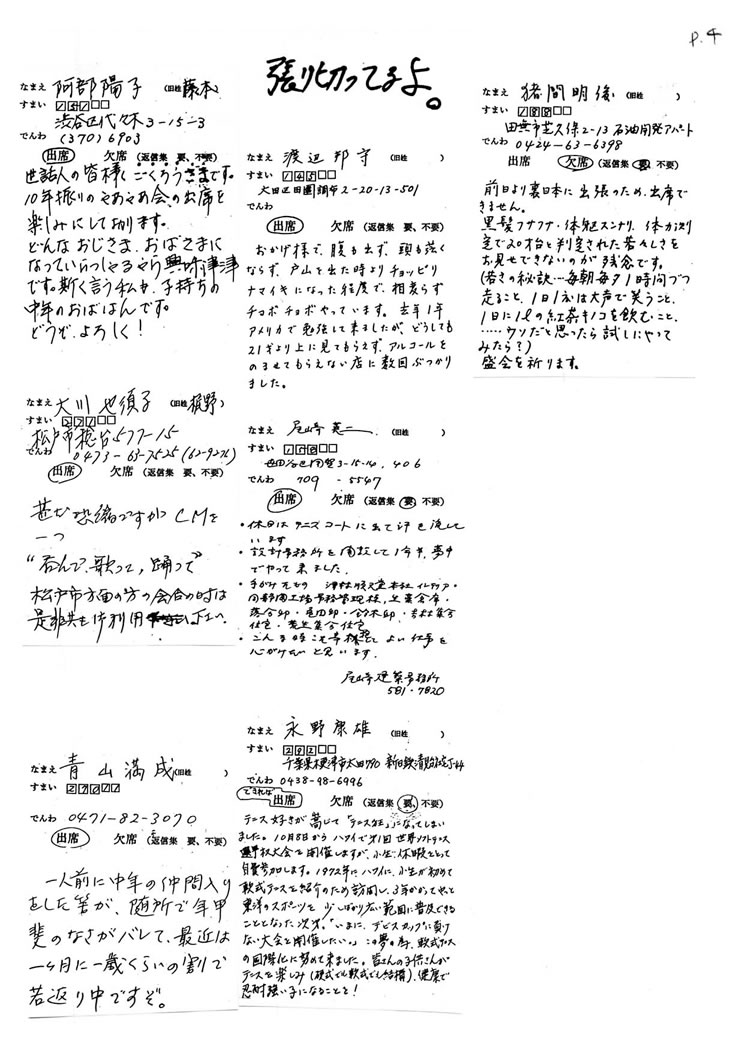 P.4
張り切ってるよ。
なまえ 阿部陽子 (旧姓 藤本)
すまい
渋谷区代々木3-15-3
でんわ (370) 6903
出席 欠席 (返信集 要、不要)
世話人の皆様、ごくろうさまです。
10年振りのやあやあ会の出席を
楽しみにしております。
どんなおじさま、おばさまに
なっていらっしゃるやら興味津津
です。斯く言う私も、子持ちの
中年のおばはんです。
どうぞ、よろしく!
なまえ 大川 (旧姓 梶野)
すまい
松戸市稔台577-15
でんわ 0473-63-7525
出席 欠席 (返信集 要、不要)
甚だ恐縮ですがCMを
一つ
"呑んで、歌って、踊って"
松戸市方面の方の会合の時は
是非共御利用下さい。
なまえ 青山満成 (旧姓 )
すまい
でんわ 0471-82-3070
出席 欠席 (返信集 要、不要)
一人前に中年の仲間入り
をした筈が、随所で年甲
斐のなさがバレて、最近は
一ヶ月に一歳くらいの割で
若返り中ですぞ。
なまえ 渡辺邦守 (旧姓 )
すまい
大田区田園調布2-20-13-501
でんわ
出席 欠席 (返信集 要、不要)
おかげ様で、腹も出ず、頭も薄く
ならず、戸山を出た時よりチョッピリ
ナマイキになった程度で、相変らず
チョボチョボやっています。去年1年
アメリカで勉強して来ましたが、どうしても
21才より上に見てもらえず、アルコールを
のませてもらえない店に数回ぶつかり
ました。
なまえ 尾崎 (旧姓 )
すまい
3-15-14, 406
でんわ 709-5547
出席 欠席 (返信集 要、不要)
・休日はテニスコートに出て汗を流して
います
・設計事務所を開設して1年半、夢中
でやって来ました。
・
・こんな時こそ
心がけたいと思います。
尾崎建築事務所
581・7820
なまえ 永野康雄 (旧姓 )
すまい 292
千葉県木更津市太田790
でんわ 0438-98-6996
できれば 出席 欠席 (返信集 要、不要)
テニス好きが高じて「テニス狂」になってしまい
ました。10月8日からハワイで第1回世界ソフトテニス
選手权大会を開催しますが、小生、休暇をとって
自費参加します。1972年にハワイに、小生が初めて
軟式テニスを紹介のため訪問し、3年かかってやっと
東洋のスポーツを少しばかり広い範囲に普及できる
こととなった次第。「いまに、デビスカップに負け
ない大会を開催したい。」この夢の為、軟式テニス
の国際化に努めて来ました。皆さんの子供さんが
テニスを楽しみ(硬式でも軟式でも結構)、健康で
忍耐強い子になることを!
なまえ 猪間明俊 (旧姓 )
すまい 188
田無市芝久保2-13 石油開発アパート
でんわ 0424-63-6398
出席 欠席 (返信集 要、不要)
前日より裏日本に出張のため、出席で
きません。
黒髪フサフサ・体躯スンナリ、体力測
定で20才台と判定された若々しさを
お見せできないのが残念です。
(若さの秘訣…毎朝毎夕1時間づつ
走ること、1日1えは大声で笑うこと、
1日に1ℓの紅茶キノコを飲むこと、
……ウソだと思ったら試しにやって
みたら?)
盛会を祈ります。